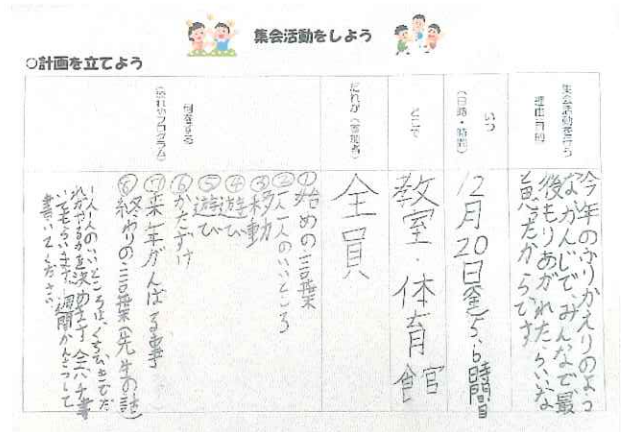 集会活動をしよう
○計画を立てよう
集会活動を行う
理由・目的
今年のふりかえりのよう
なかんじで、みんなで最
後もりあがれたらいいな
と思ったからです
いつ
(日時・時間)
12月20日金5、6時間目
どこで
教室・体育館
だれが(参加者)
全員
何をする
(流れやプログラム)
①始めの言葉
②一人一人のいいところ
③移動
④遊び
⑤遊び
⑥かたずけ
⑦来年がんばる事
⑧終わりの言葉(先生の話)
一人一人のいいところは、くじびきでだ
れがやるかを決めます
いてもらいます。一週間かんさつして
書いてください。